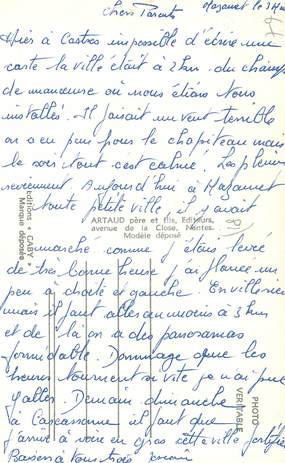 Chers Parents
Mazamet le 3 Mai
Hier à Castres impossible d'écrire une
carte la ville était à 2 km du champ
de manœuvre où nous étions tous
installés. Il faisait un vent terrible
on a eu peur pour le chapiteau mais
le soir tout s'est calmé. Les pleins
reviennent. Aujourd'hui à Mazamet
toute petite ville, il y avait
ARTAUD père et fils, Editeurs,
avenue de la Close, Nantes.
Modèle déposé
Editions "GABY"
Marque déposée
marché comme j'étais levé
de très bonne heure j'ai flâné un
peu à droite et gauche. En ville rien
mais il faut aller au moins à 3 km
et de là on a des panoramas
formidable. Dommage que les
heures tournent si vite je n'ai pu
y aller. Demain dimanche
à Carcassonne il faut que
j'arrive à voir en gros cette ville fortifiée
Baisers à tous trois
PHOTO
VÉRITABLE